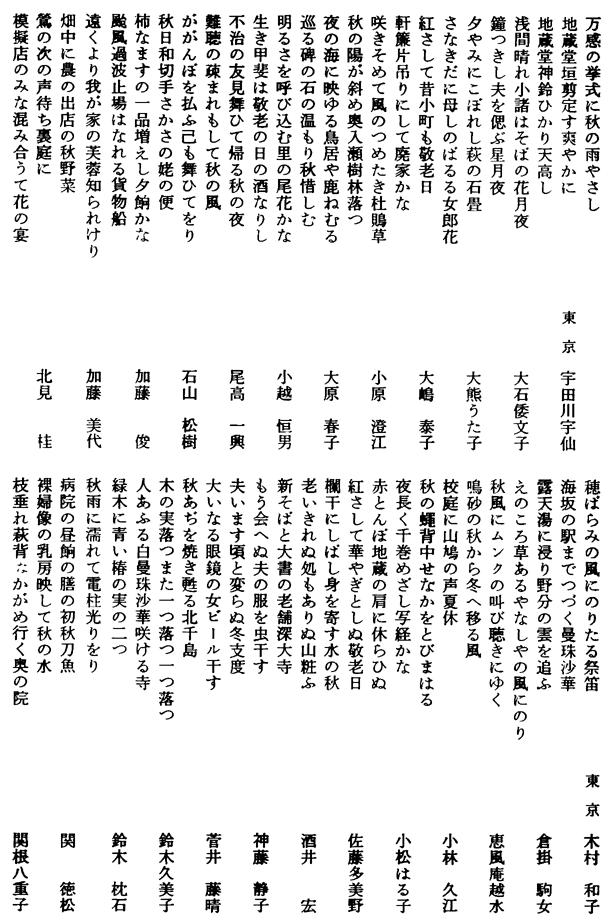 万感の挙式に秋の雨やさし
地蔵堂垣剪定す爽やかに 東京 宇田川宇仙
地蔵堂神鈴ひかり天高し
浅間晴れ小諸はそばの花月夜 大石倭文子
鐘つきし夫を偲ぶ星月夜
夕やみにこぼれし萩の石畳 大熊うた子
さなきだに母しのばるる女郎花
紅さして昔小町も敬老日 大嶋泰子
軒簾片吊りにして廃家かな
咲きそめて風のつめたき杜鵑草 小原澄江
秋の陽が斜め奥入瀬樹林落つ
夜の海に映ゆる鳥居や鹿ねむる 大原春子
巡る碑の石の温もり秋惜しむ
明るさを呼び込む里の尾花かな 小越恒男
生き甲斐は敬老の日の酒なりし
不治の友見舞ひて帰る秋の夜 尾高一興
難聴の疎まれもして秋の風
ががんぼを払ふ己も舞ひてをり 石山松樹
秋日和切手さかさの姥の便
柿なますの一品増えし夕餉かな 加藤俊
颱風過波止場はなれる貨物船
遠くより我が家の芙蓉知られけり 加藤美代
畑中に農の出店の秋野菜
鶯の次の声待ち裏庭に 北見桂
模擬店のみな混み合うて花の宴
穂ばらみの風にのりたる祭笛 東京 木村和子
海坂の駅までつづく曼珠沙華
露天湯に浸り野分の雲を追ふ 倉掛駒女
えのころ草あるやなしやの風にのり
秋風にムンクの叫び聴きにゆく 恵風庵越水
鳴砂の秋から冬へ移る風
校庭に山鳩の声夏休 小林久江
秋の蠅背中せなかをとびまはる
夜長く千巻めざし写経かな 小松はる子
赤とんぼ地蔵の肩に休らひぬ
紅さして華やぎとしぬ敬老日 佐藤多美野
欄干にしばし身を寄す水の秋
老いきれぬ処もありぬ山粧ふ 酒井宏
新そばと大書の老舗深大寺
もう会へぬ夫の服を虫干す 神藤静子
夫います頃と変らぬ冬支度
大いなる眼鏡の女ビール干す 菅井藤晴
秋あぢを焼き甦る北千島
木の実落つまた一つ落つ一つ落つ 鈴木久美子
人あふる白曼珠沙華咲ける寺
緑木に青い椿の実の二つ 鈴木枕石
秋雨に濡れて電柱光りをり
病院の昼餉の膳の初秋刀魚 関徳松
裸婦像の乳房映して秋の水
枝垂れ萩背なかがめ行く奥の院 関根八重子